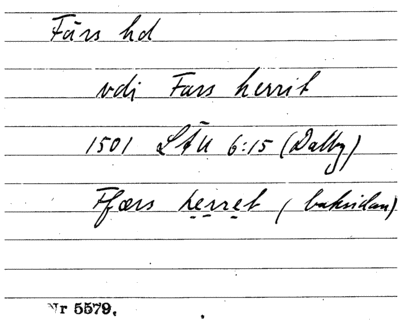 Färs hd
vdj Fars herrit
1501 LÄU 6:15 (Dalby)
Ffærs herret (baksidan)
Nr 5579.